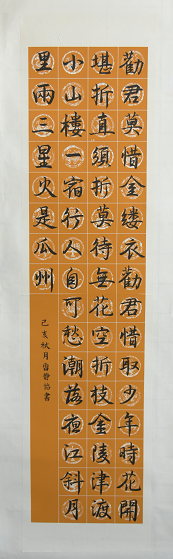 勸君莫惜金缕衣勸君惜取少年時花開
堪折直須折莫待無花空折枝金陵津渡
小山樓一宿行人自可愁潮落夜江斜月
里兩三星火是瓜州
己亥秋月書